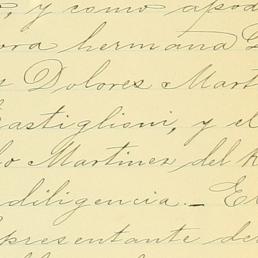 , y como apod
ora hermana G
Dolores Mart
Castiglioni, y el
lo Martinez del R
diligencia. - El
epresentante de